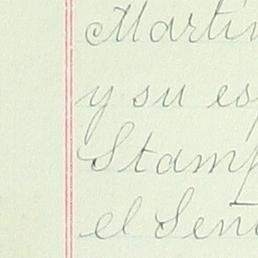 Martin
y su esp
Stamp
el Sen